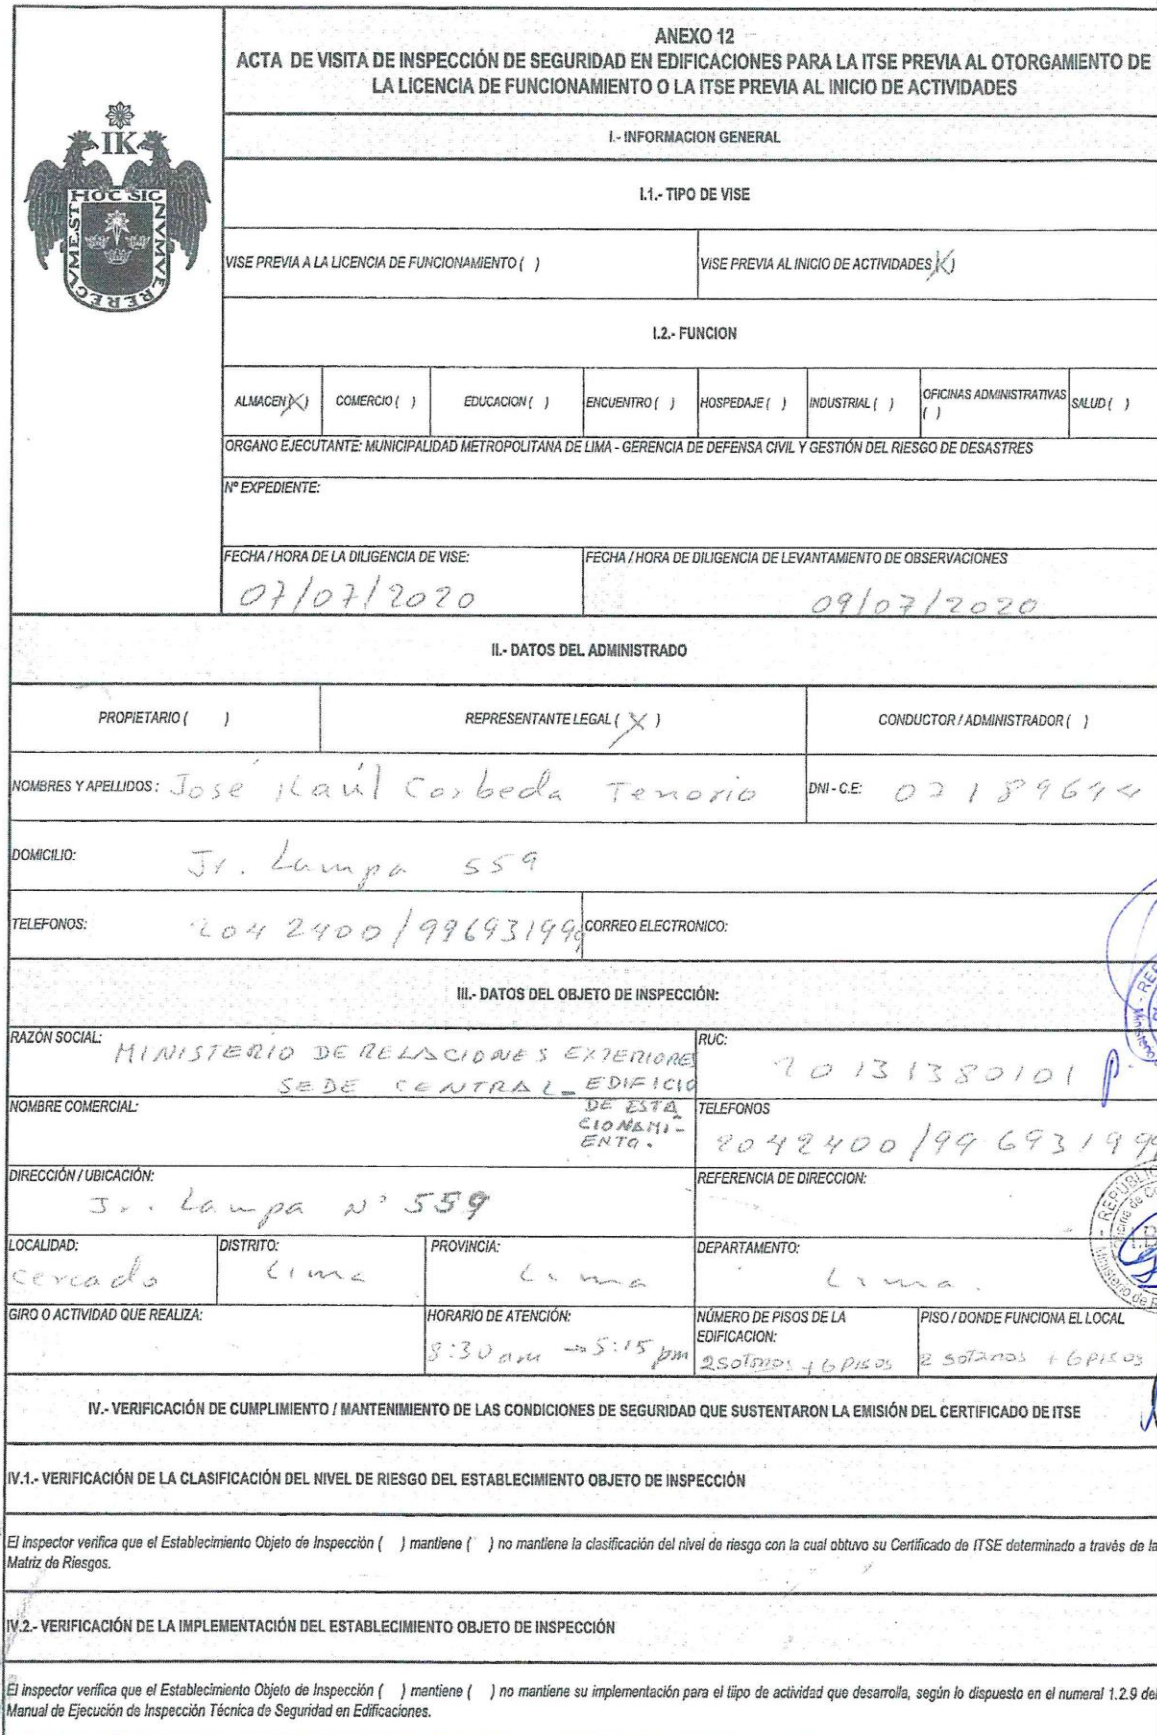 ANEXO 12
ACTA DE VISITA DE INSPECCIÓN DE SEGURIDAD EN EDIFICACIONES PARA LA ITSE PREVIA AL OTORGAMIENTO DE
LA LICENCIA DE FUNCIONAMIENTO O LA ITSE PREVIA AL INICIO DE ACTIVIDADES
IK
HOC SIG
NVMVERE
REGVMEST
I.- INFORMACION GENERAL
I.1.- TIPO DE VISE
VISE PREVIA A LA LICENCIA DE FUNCIONAMIENTO ( )
VISE PREVIA AL INICIO DE ACTIVIDADES (X)
I.2.- FUNCION
ALMACEN (X)
COMERCIO ( )
EDUCACION ( )
ENCUENTRO ( )
HOSPEDAJE ( )
INDUSTRIAL ( )
OFICINAS ADMINISTRATIVAS
( )
SALUD ( )
ORGANO EJECUTANTE: MUNICIPALIDAD METROPOLITANA DE LIMA - GERENCIA DE DEFENSA CIVIL Y GESTIÓN DEL RIESGO DE DESASTRES
Nº EXPEDIENTE:
FECHA / HORA DE LA DILIGENCIA DE VISE:
07/07/2020
FECHA / HORA DE DILIGENCIA DE LEVANTAMIENTO DE OBSERVACIONES
09/07/2020
II.- DATOS DEL ADMINISTRADO
PROPIETARIO ( )
REPRESENTANTE LEGAL ( X )
CONDUCTOR / ADMINISTRADOR ( )
NOMBRES Y APELLIDOS: José Raúl Corbeda Tenorio
DNI - C.E:
DOMICILIO: Jr. Lampa 559
TELEFONOS: 2042400/996931999
CORREO ELECTRONICO:
III.- DATOS DEL OBJETO DE INSPECCIÓN:
RAZÓN SOCIAL: MINISTERIO DE RELACIONES EXTERIORES
SEDE CENTRAL_ EDIFICIO
DE ESTA
CIONAMI-
ENTO.
RUC: 20131380101
NOMBRE COMERCIAL:
TELEFONOS
2042400/996931999
DIRECCIÓN / UBICACIÓN:
Jr. Lampa N° 559
REFERENCIA DE DIRECCION:
LOCALIDAD:
cercado
DISTRITO:
Lima
PROVINCIA:
Lima
DEPARTAMENTO:
Lima.
GIRO O ACTIVIDAD QUE REALIZA:
HORARIO DE ATENCIÓN:
8:30 am → 5:15 pm
NÚMERO DE PISOS DE LA
EDIFICACION:
2 sotanos + 6 pisos
PISO / DONDE FUNCIONA EL LOCAL
2 sotanos + 6 pisos
IV.- VERIFICACIÓN DE CUMPLIMIENTO / MANTENIMIENTO DE LAS CONDICIONES DE SEGURIDAD QUE SUSTENTARON LA EMISIÓN DEL CERTIFICADO DE ITSE
IV.1.- VERIFICACIÓN DE LA CLASIFICACIÓN DEL NIVEL DE RIESGO DEL ESTABLECIMIENTO OBJETO DE INSPECCIÓN
El inspector verifica que el Establecimiento Objeto de Inspección ( ) mantiene ( ) no mantiene la clasificación del nivel de riesgo con la cual obtuvo su Certificado de ITSE determinado a través de la
Matriz de Riesgos.
IV.2.- VERIFICACIÓN DE LA IMPLEMENTACIÓN DEL ESTABLECIMIENTO OBJETO DE INSPECCIÓN
El inspector verifica que el Establecimiento Objeto de Inspección ( ) mantiene ( ) no mantiene su implementación para el tiipo de actividad que desarrolla, según lo dispuesto en el numeral 1.2.9 del
Manual de Ejecución de Inspección Técnica de Seguridad en Edificaciones.